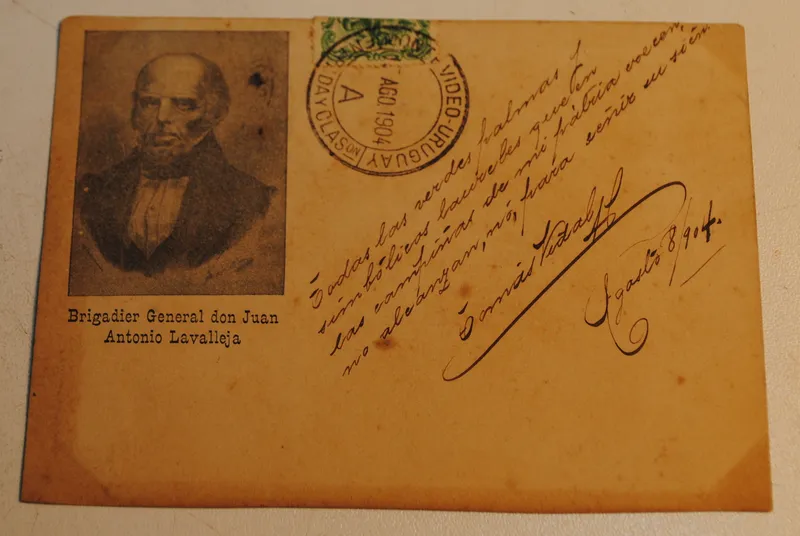 Brigadier General don Juan
Antonio Lavalleja
VIDEO-URUGUAY
AGO.1904
A
Todas las verdes palmas y
simbólicos laureles que en
las campiñas de mi patria
no alcanzan, nó, para ceñir su sién
Tomás Vidal
Agosto 8/904.